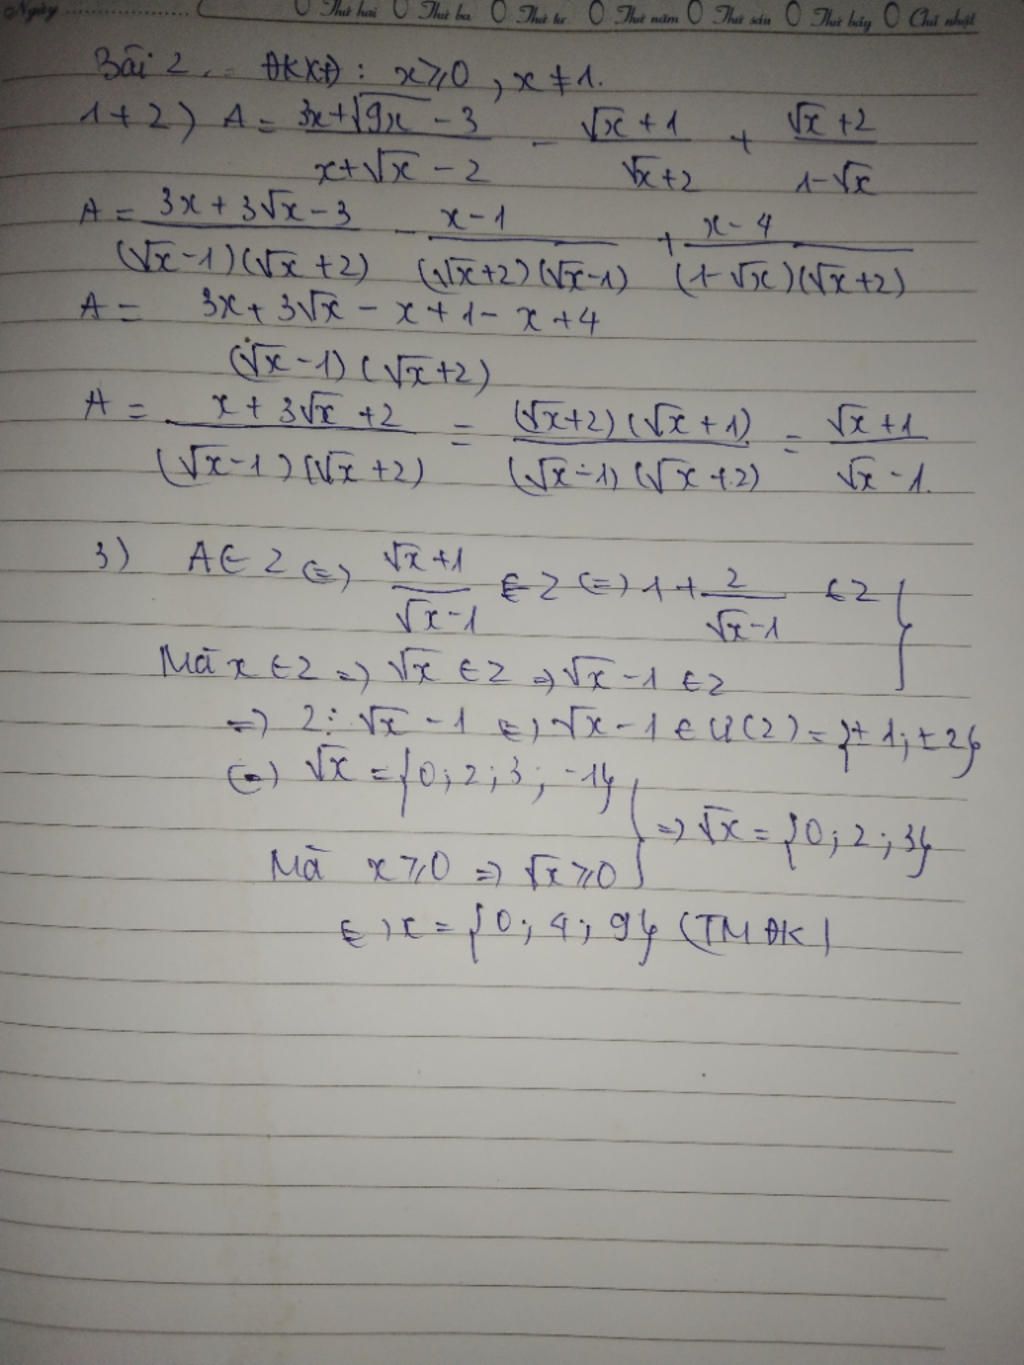 Ngày ........................ Thứ hai Thứ ba Thứ tư Thứ năm Thứ sáu Thứ bảy Chủ nhật
Bài 2. ĐKXĐ : x ⩾ 0 , x ≠ 1.
1+2) A = (3x+√9x - 3)/(x+√x - 2) - (√x + 1)/(√x+2) + (√x +2)/(1-√x)
A = (3x + 3√x - 3)/((√x -1)(√x +2)) - (x - 1)/((√x+2)(√x-1)) + (x - 4)/((1-√x)(√x+2))
A = (3x + 3√x - x + 1 - x + 4)/((√x -1)(√x+2))
A = (x + 3√x +2)/((√x-1)(√x+2)) = ((√x+2)(√x+1))/((√x-1)(√x+2)) = (√x +1)/(√x -1).
3) A ∈ Z (=) (√x +1)/(√x -1) ∈ Z (=) 1 + 2/(√x -1) ∈ Z }
Mà x ∈ Z => √x ∈ Z => √x -1 ∈ Z
=> 2 ⋮ √x - 1 (=) √x - 1 ∈ Ư(2) = {± 1; ± 2}
(=) √x = {0; 2; 3; -1} } => √x = {0; 2; 3}
Mà x ⩾ 0 => √x ⩾ 0
(=) x = {0; 4; 9} (TMĐK)